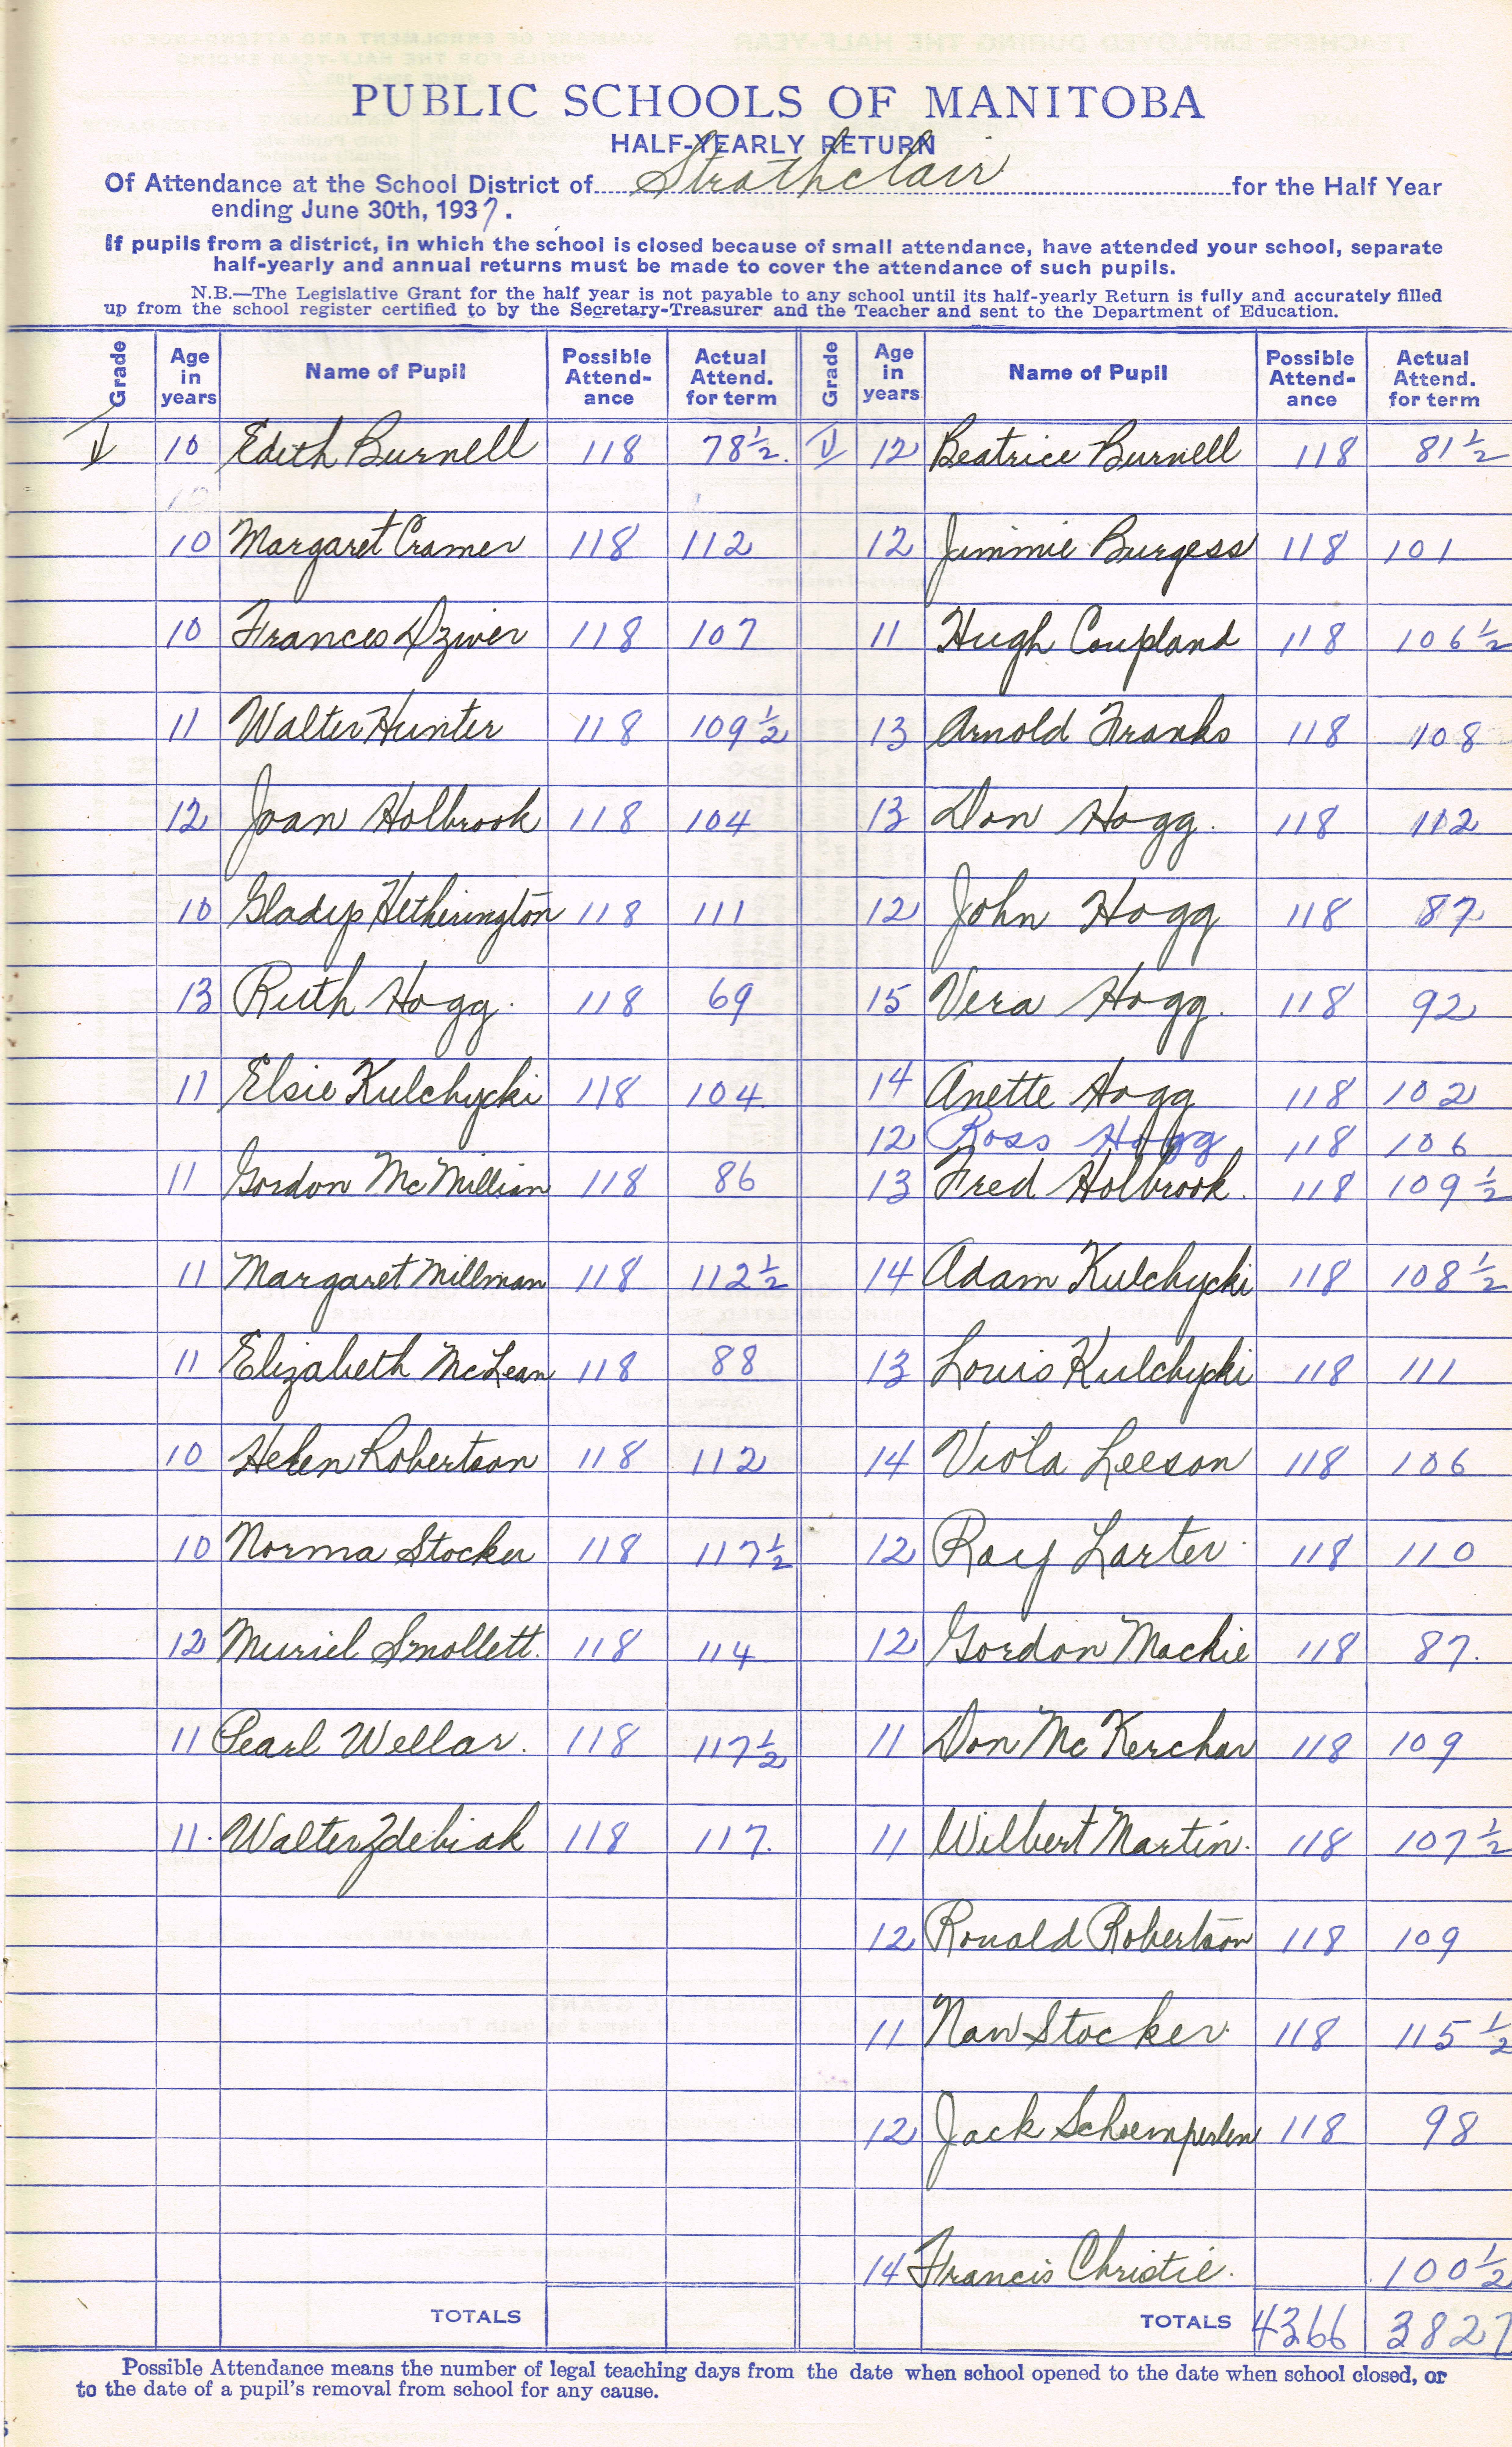 PUBLIC SCHOOLS OF MANITOBA
HALF-YEARLY RETURN
Of Attendance at the School District of Strathclair for the Half Year
ending June 30th, 1937.
If pupils from a district, in which the school is closed because of small attendance, have attended your school, separate
half-yearly and annual returns must be made to cover the attendance of such pupils.
N.B.—The Legislative Grant for the half year is not payable to any school until its half-yearly Return is fully and accurately filled
up from the school register certified to by the Secretary-Treasurer and the Teacher and sent to the Department of Education.
Grade Age in years Name of Pupil Possible Attend-ance Actual Attend. for term Grade Age in years Name of Pupil Possible Attend-ance Actual Attend. for term
V 10 Edith Burnell 118 78½. V 12 Beatrice Burnell 118 81½
10 Margaret Cramer 118 112 12 Jimmie Burgess 118 101
10 Frances Dziver 118 107 11 Hugh Coupland 118 106½
11 Walter Hunter 118 109½ 13 Arnold Franks 118 108
12 Joan Holbrook 118 104 13 Don Hogg. 118 112
10 Gladys Hetherington 118 111 12 John Hogg 118 87
13 Ruth Hogg. 118 69 15 Vera Hogg. 118 92
11 Elsie Kulchycki 118 104 14 Anette Hogg 118 102
12 Ross Hogg 118 106
11 Gordon McMillian 118 86 13 Fred Holbrook. 118 109½
11 Margaret Millman 118 112½ 14 Adam Kulchycki 118 108½
11 Elizabeth McLean 118 88 13 Louis Kulchycki 118 111
10 Helen Robertson 118 112 14 Viola Leeson 118 106
10 Norma Stocker 118 117½ 12 Ray Larter 118 110
12 Muriel Smollett. 118 114 12 Gordon Mackie 118 87.
11 Pearl Wellar. 118 117½ 11 Don McKerchar 118 109
11. Walter Zdebiak 118 117. 11 Wilbert Martin. 118 107½
12 Ronald Robertson 118 109
11 Nan Stocker 118 115½
12 Jack Schoemperlen 118 98
14 Francis Christie. 100½
TOTALS TOTALS 4366 3827
Possible Attendance means the number of legal teaching days from the date when school opened to the date when school closed, or
to the date of a pupil's removal from school for any cause.